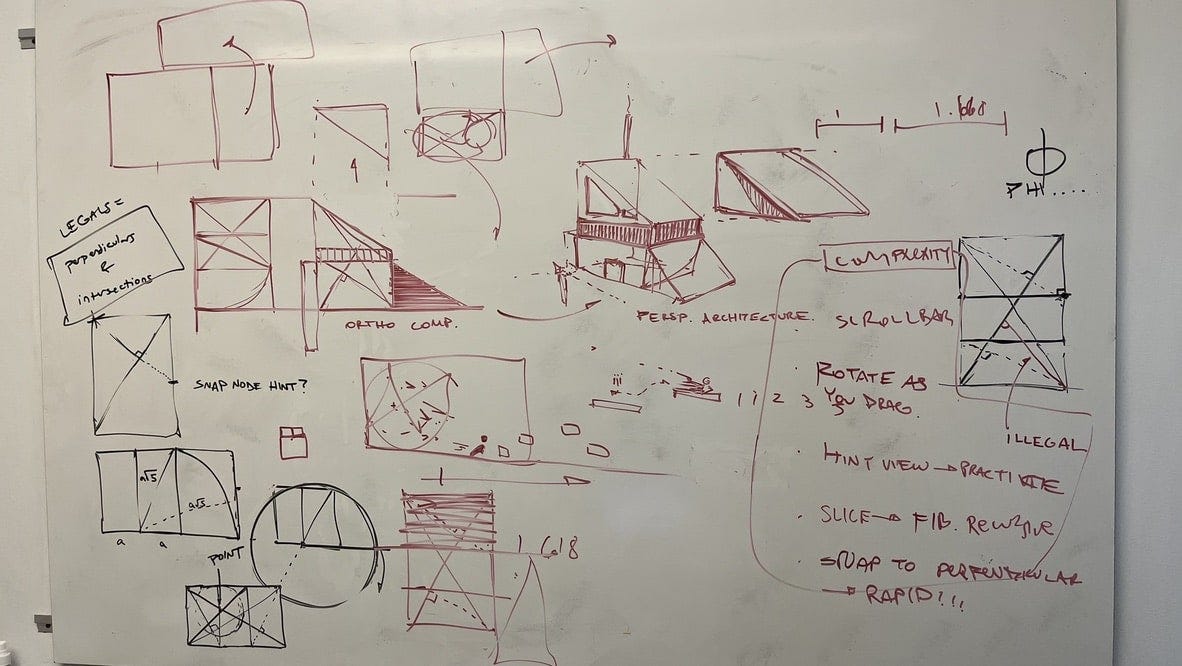 1
1.618
PHI....
LEGALS =
perpendiculars
&
intersections
ORTHO COMP.
PERSP. ARCHITECTURE.
SNAP NODE HINT?
1 1 2 3 5
COMPLEXITY
SCROLLBAR
· ROTATE AS
YOU DRAG.
ILLEGAL
· HINT VIEW →
· SLICE → FIB. RECURSIVE
· SNAP TO PERPENDICULAR
→ RAPID!!!
a√5
a√5
a a
POINT
1.618